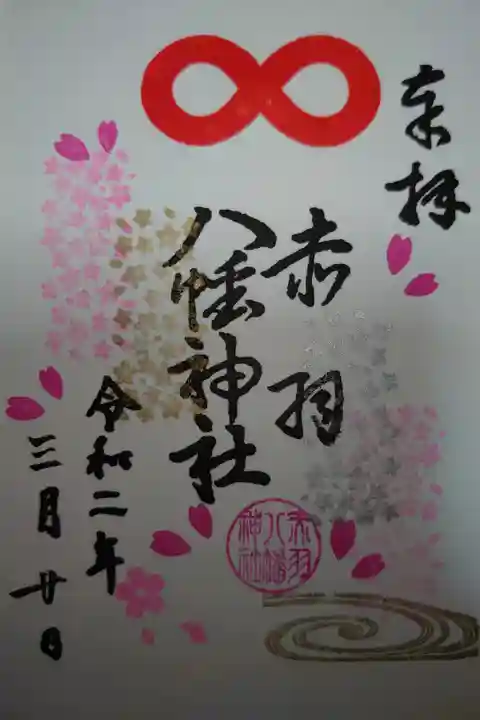 奉拝
赤羽
八幡神社
令和二年
三月廿日
赤羽
八幡
神社